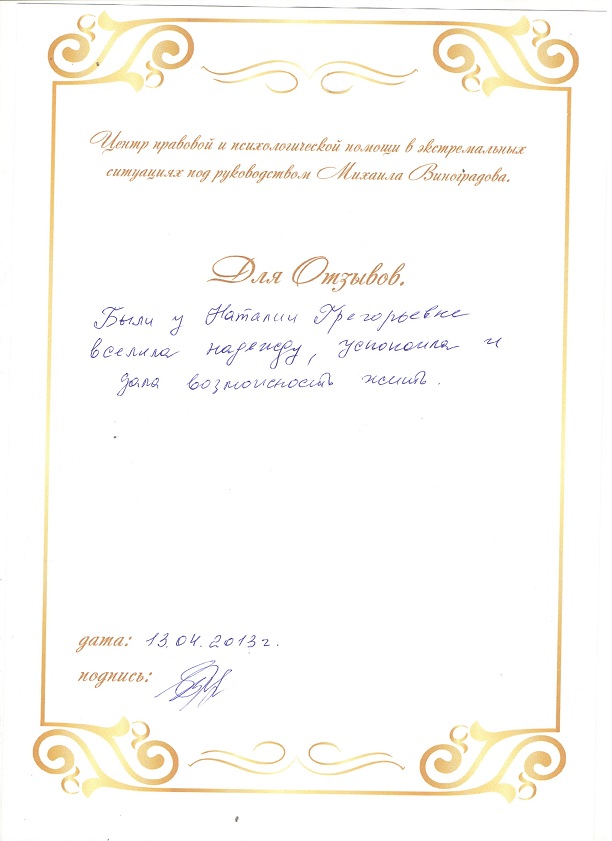 Центр правовой и психологической помощи в экстремальных
ситуациях под руководством Михаила Виноградова.
Для Отзывов.
Были у Наталии Грегорьевне
вселила надежду, успокоила и
дала возможность жить.
дата: 13.04.2013г.
подпись: